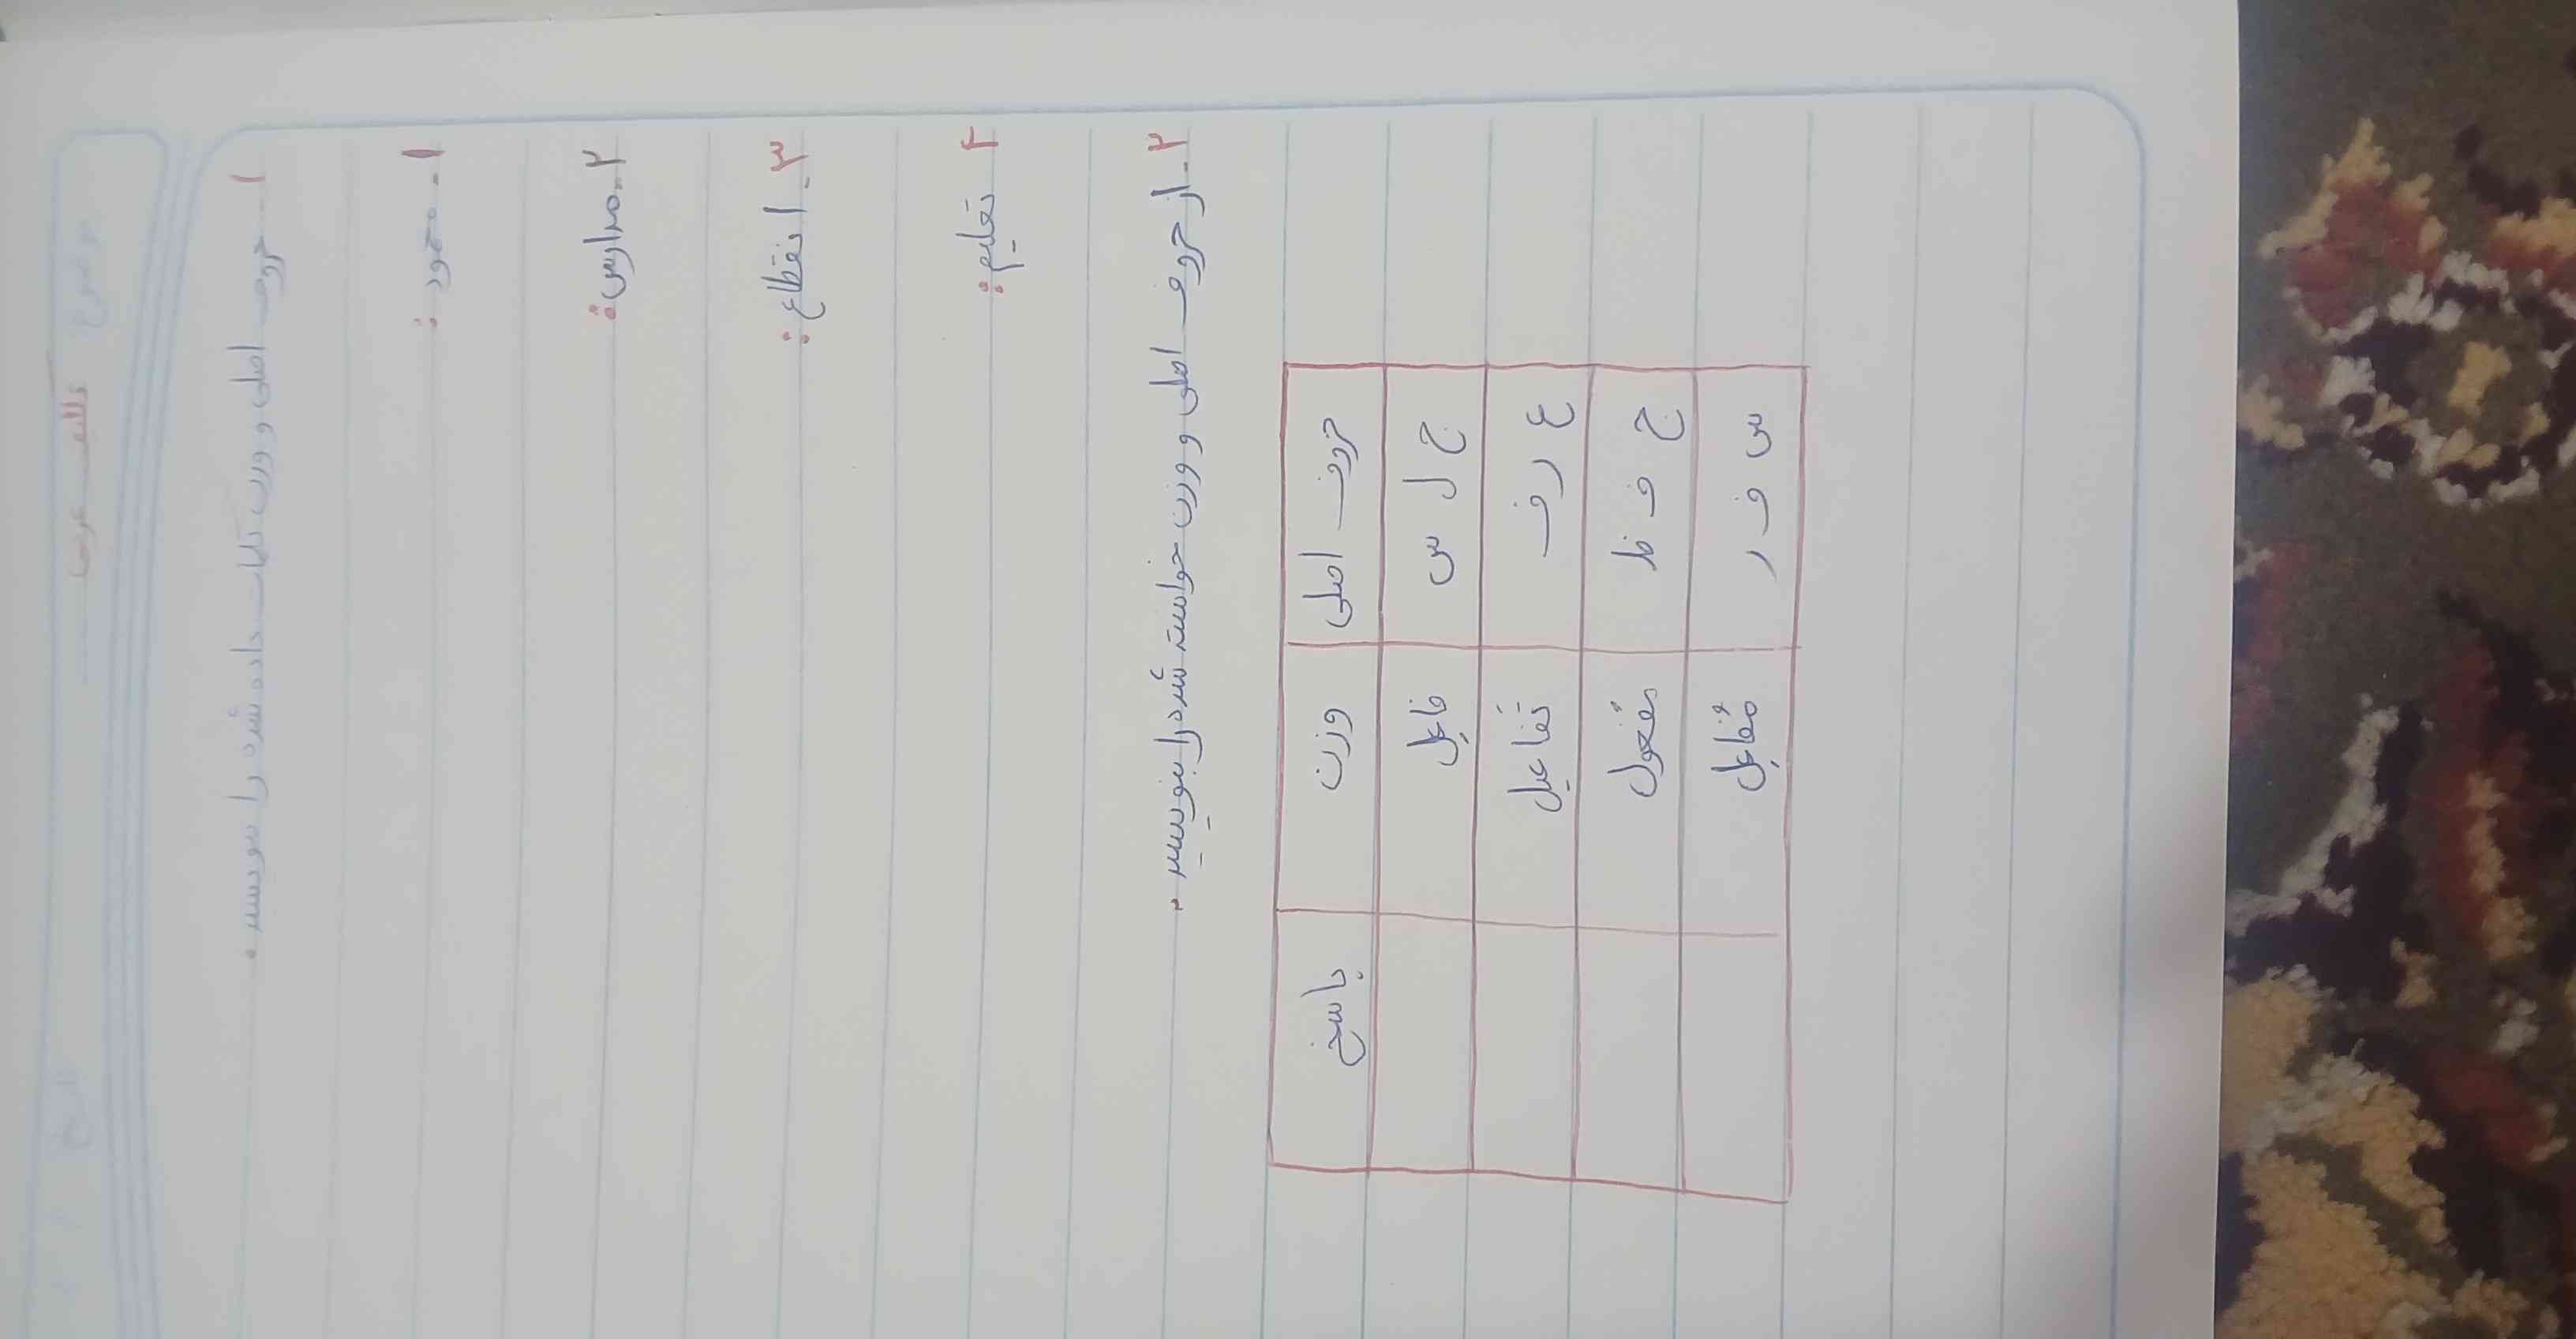 موضوع
تکلیف عربی
تاریخ / /
۱- حروف اصلی و وزن کلمات داده شده را بنویسید.
۱- محمود:
۲- مدارس:
۳- انقطاع:
۴- تعلیم:
۲- از حروف اصلی و وزن خواسته شده را بنویسید.
حروف اصلی وزن پاسخ
ج ل س فاعِل
ع ر ف تَفاعیل
ح ف ظ مفعول
س ف ر مُفاعِل